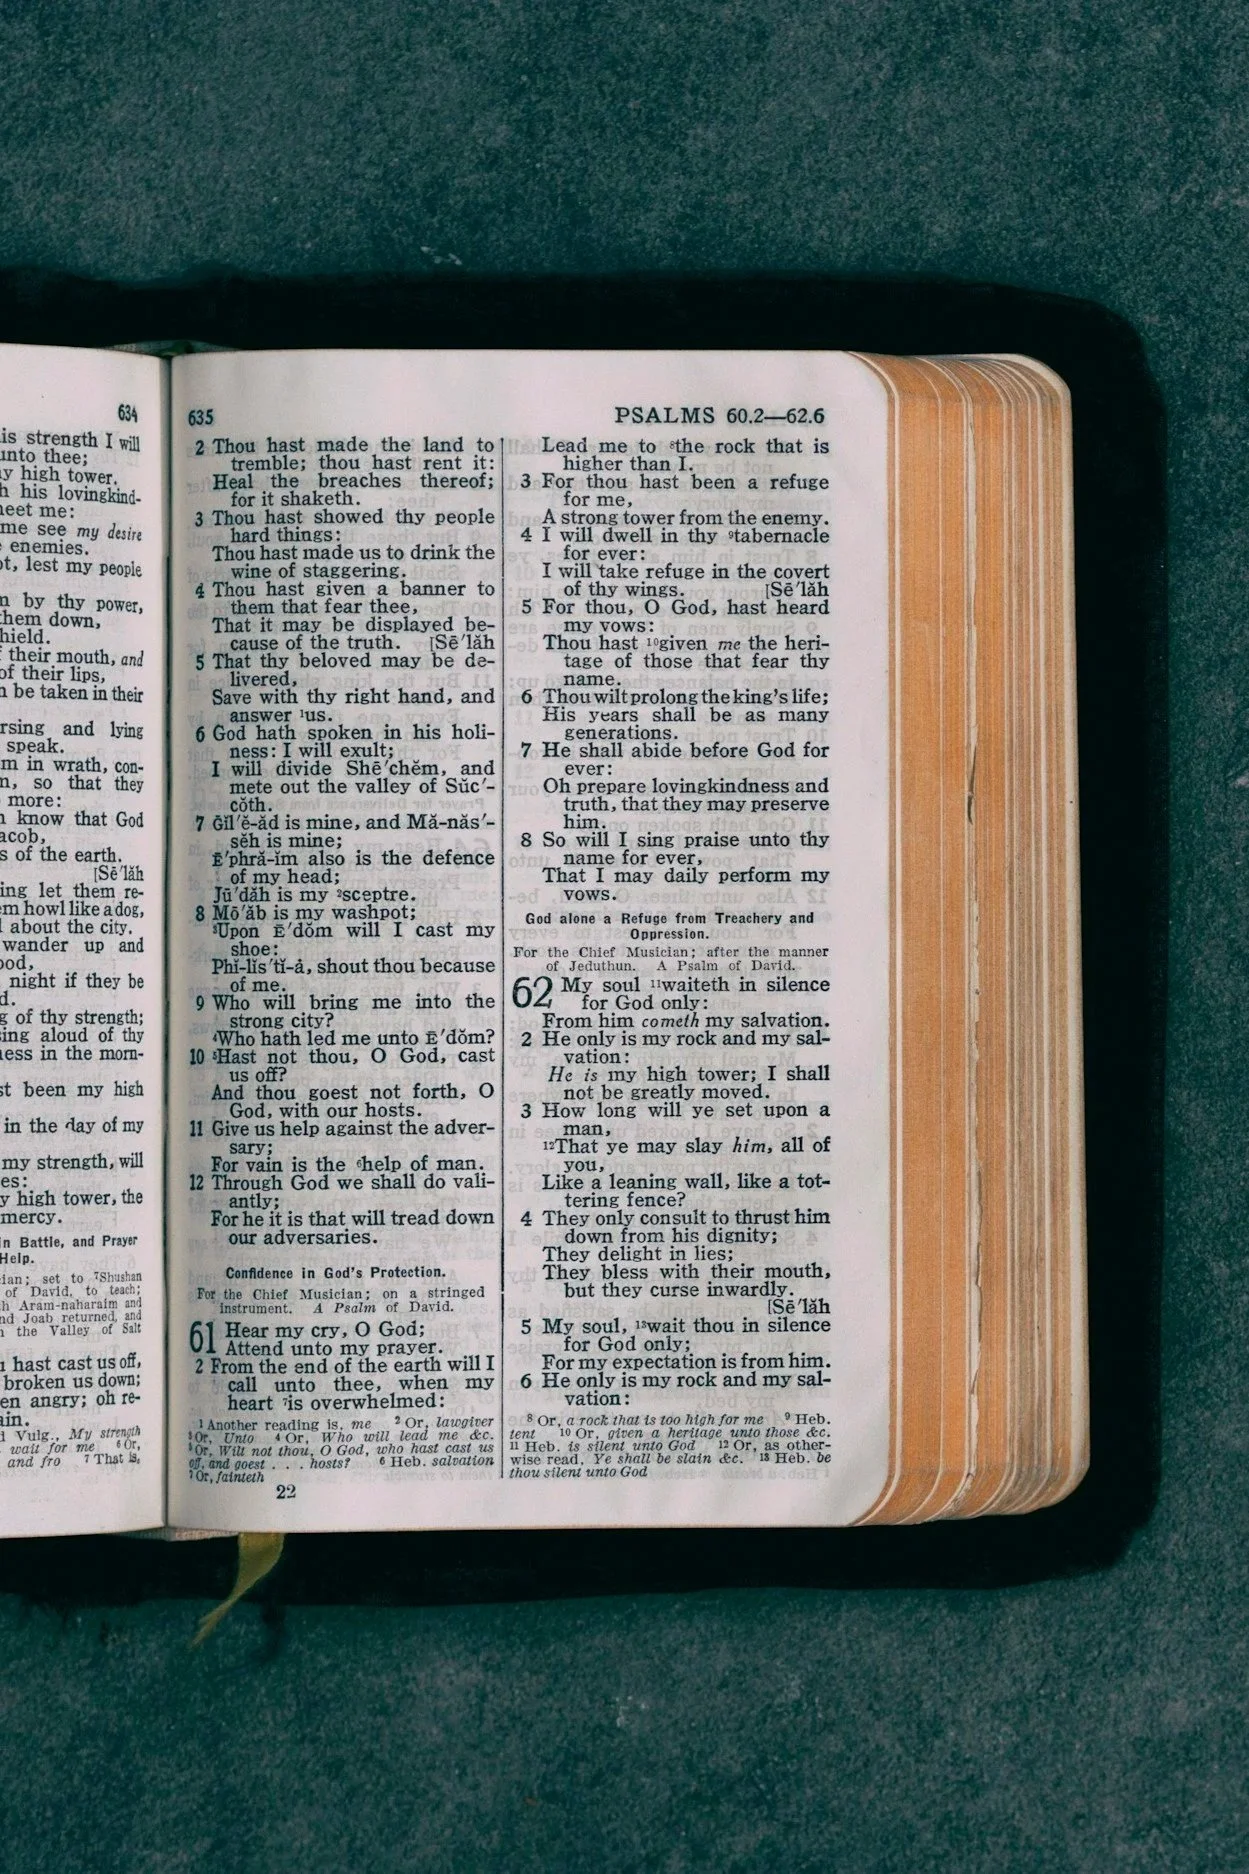 634
is strength I will
unto thee;
y high tower.
h his lovingkind-
neet me:
me see my desire
enemies.
ot, lest my people
n by thy power,
them down,
hield.
f their mouth, and
of their lips,
n be taken in their
rsing and lying
speak.
m in wrath, con-
n, so that they
more:
n know that God
acob,
s of the earth.
[Sē′lăh
ing let them re-
em howl like a dog,
l about the city.
wander up and
ood,
night if they be
d.
g of thy strength;
sing aloud of thy
ness in the morn-
st been my high
in the day of my
my strength, will
es:
y high tower, the
mercy.
in Battle, and Prayer
Help.
ian; set to ⁷Shushan
of David, to teach;
h Aram-naharaim and
nd Joab returned, and
n the Valley of Salt
u hast cast us off,
broken us down;
en angry; oh re-
ain.
d Vulg., My strength
wait for me ⁶ Or,
and fro ⁷ That is,
635
PSALMS 60.2—62.6
2 Thou hast made the land to
tremble; thou hast rent it:
Heal the breaches thereof;
for it shaketh.
3 Thou hast showed thy people
hard things:
Thou hast made us to drink the
wine of staggering.
4 Thou hast given a banner to
them that fear thee,
That it may be displayed be-
cause of the truth. [Sē′lăh
5 That thy beloved may be de-
livered,
Save with thy right hand, and
answer ¹us.
6 God hath spoken in his holi-
ness: I will exult;
I will divide Shē′chĕm, and
mete out the valley of Sŭc′-
cŏth.
7 Gĭl′ĕ-ăd is mine, and Mă-năs′-
sĕh is mine;
Ē′phră-ĭm also is the defence
of my head;
Jū′dăh is my ²sceptre.
8 Mō′ăb is my washpot;
³Upon Ē′dŏm will I cast my
shoe:
Phĭ-lĭs′tĭ-ȧ, shout thou because
of me.
9 Who will bring me into the
strong city?
⁴Who hath led me unto Ē′dŏm?
10 ⁵Hast not thou, O God, cast
us off?
And thou goest not forth, O
God, with our hosts.
11 Give us help against the adver-
sary;
For vain is the ⁶help of man.
12 Through God we shall do vali-
antly;
For he it is that will tread down
our adversaries.
Confidence in God's Protection.
For the Chief Musician; on a stringed
instrument. A Psalm of David.
61 Hear my cry, O God;
Attend unto my prayer.
2 From the end of the earth will I
call unto thee, when my
heart ⁷is overwhelmed:
¹ Another reading is, me ² Or, lawgiver
³ Or, Unto ⁴ Or, Who will lead me &c.
⁵ Or, Wilt not thou, O God, who hast cast us
off, and goest . . . hosts? ⁶ Heb. salvation
⁷ Or, fainteth
22
Lead me to ⁸the rock that is
higher than I.
3 For thou hast been a refuge
for me,
A strong tower from the enemy.
4 I will dwell in thy ⁹tabernacle
for ever:
I will take refuge in the covert
of thy wings. [Sē′lăh
5 For thou, O God, hast heard
my vows:
Thou hast ¹⁰given me the heri-
tage of those that fear thy
name.
6 Thou wilt prolong the king's life;
His years shall be as many
generations.
7 He shall abide before God for
ever:
Oh prepare lovingkindness and
truth, that they may preserve
him.
8 So will I sing praise unto thy
name for ever,
That I may daily perform my
vows.
God alone a Refuge from Treachery and
Oppression.
For the Chief Musician; after the manner
of Jeduthun. A Psalm of David.
62 My soul ¹¹waiteth in silence
for God only:
From him cometh my salvation.
2 He only is my rock and my sal-
vation:
He is my high tower; I shall
not be greatly moved.
3 How long will ye set upon a
man,
¹²That ye may slay him, all of
you,
Like a leaning wall, like a tot-
tering fence?
4 They only consult to thrust him
down from his dignity;
They delight in lies;
They bless with their mouth,
but they curse inwardly.
[Sē′lăh
5 My soul, ¹³wait thou in silence
for God only;
For my expectation is from him.
6 He only is my rock and my sal-
vation:
⁸ Or, a rock that is too high for me ⁹ Heb.
tent ¹⁰ Or, given a heritage unto those &c.
¹¹ Heb. is silent unto God ¹² Or, as other-
wise read, Ye shall be slain &c. ¹³ Heb. be
thou silent unto God